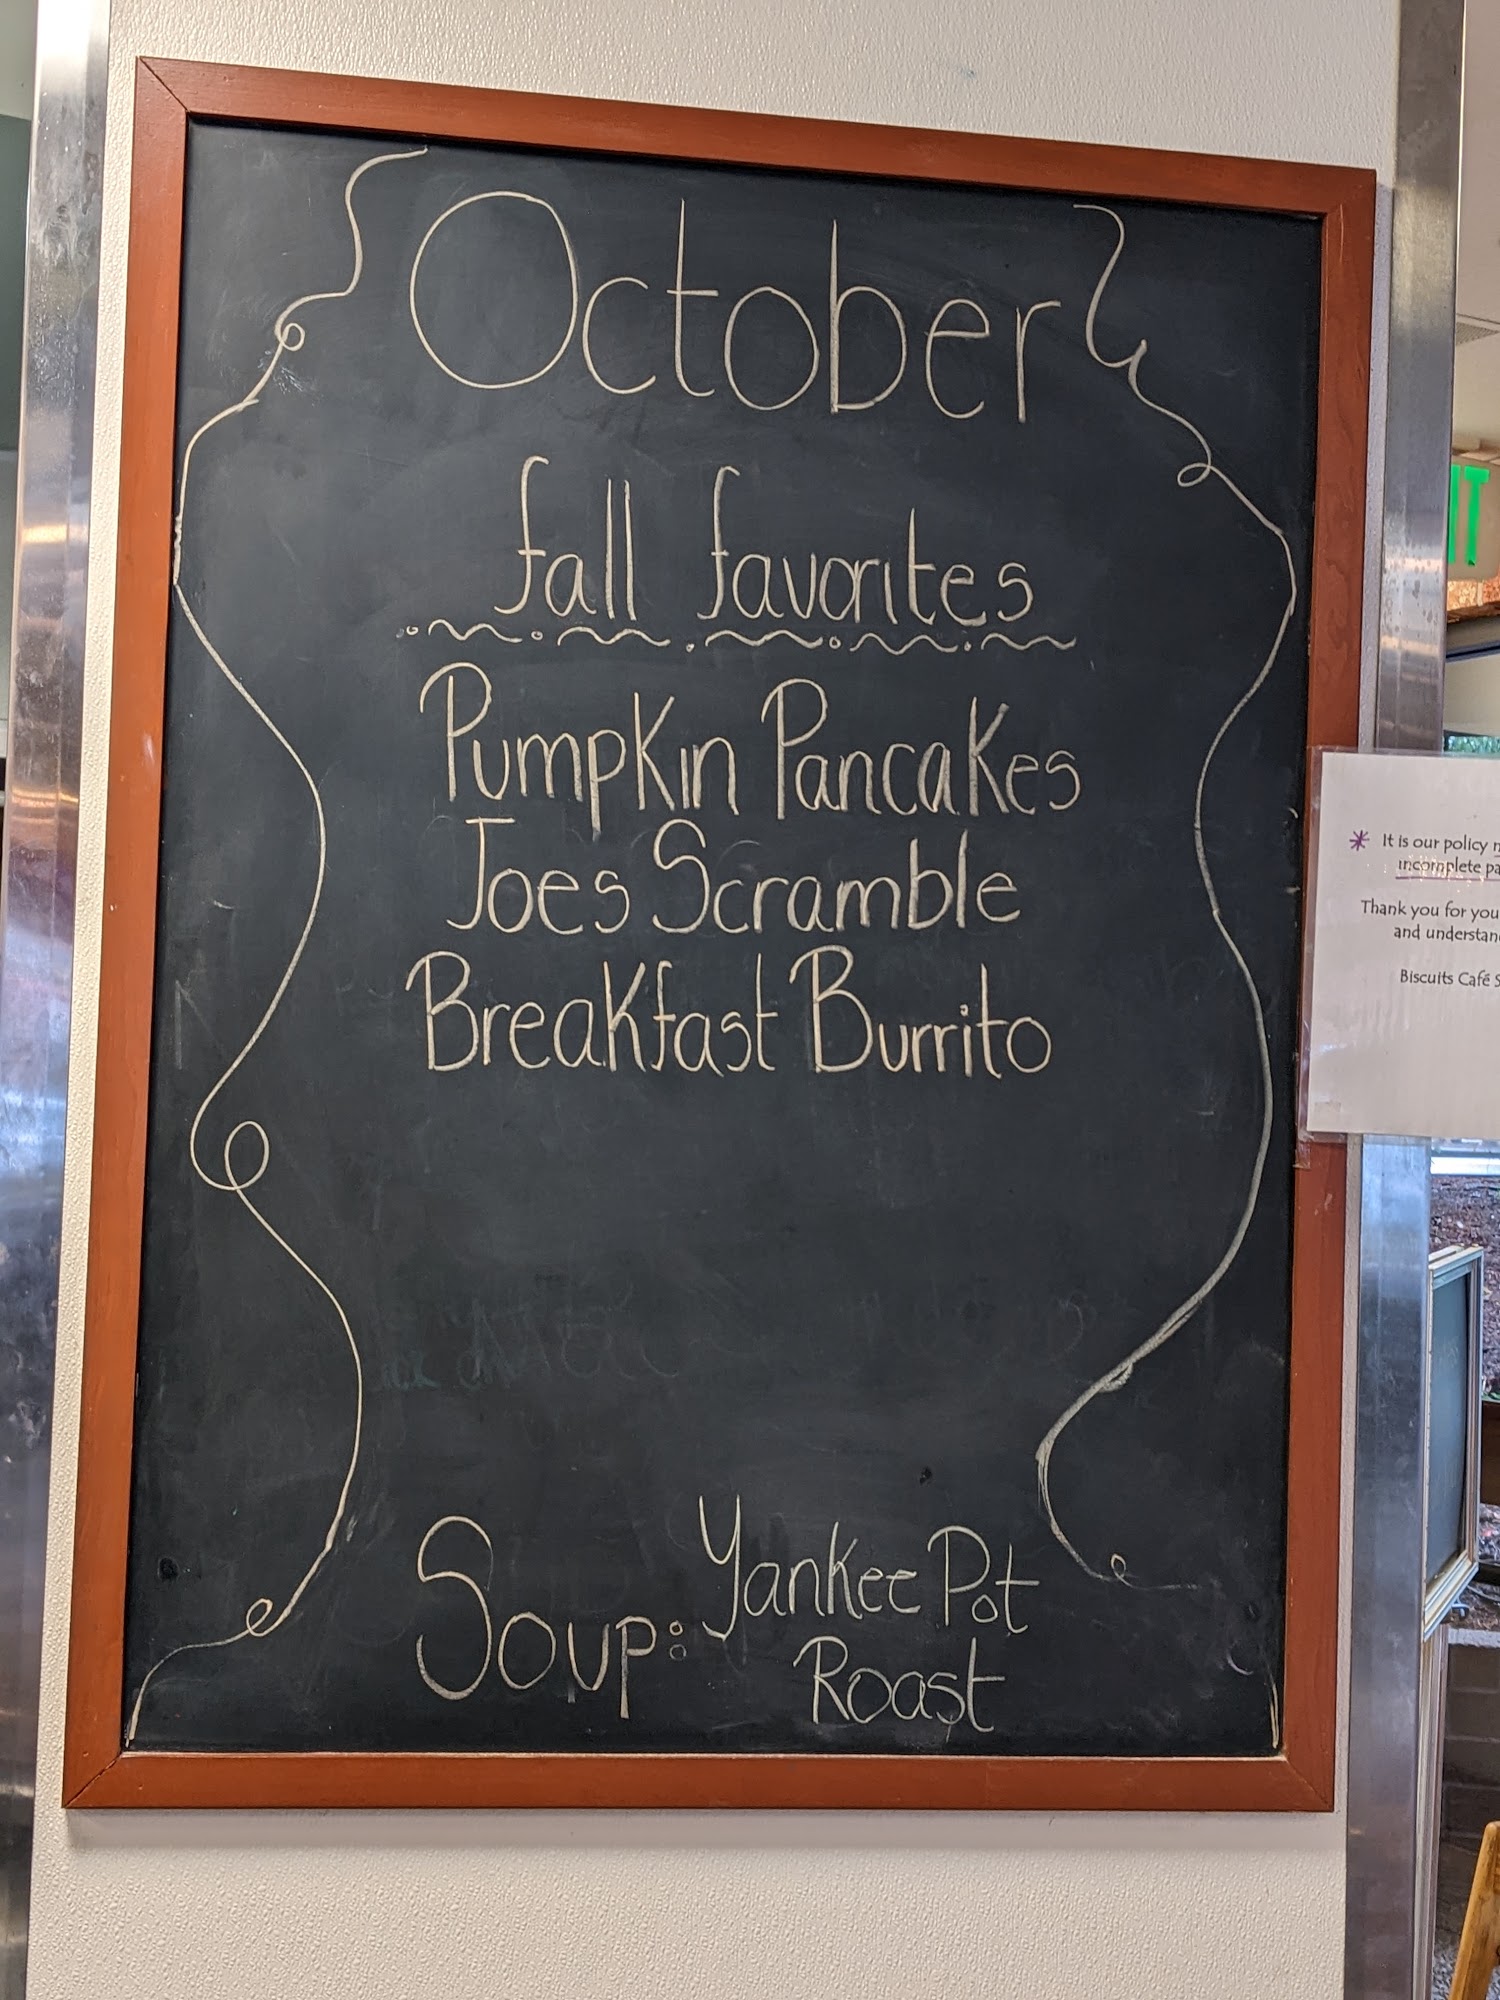 October
fall favorites
Pumpkin Pancakes
Joes Scramble
Breakfast Burrito
Soup: Yankee Pot
Roast
IT
* It is our policy
incomplete
Thank you for
and
Biscuits Café